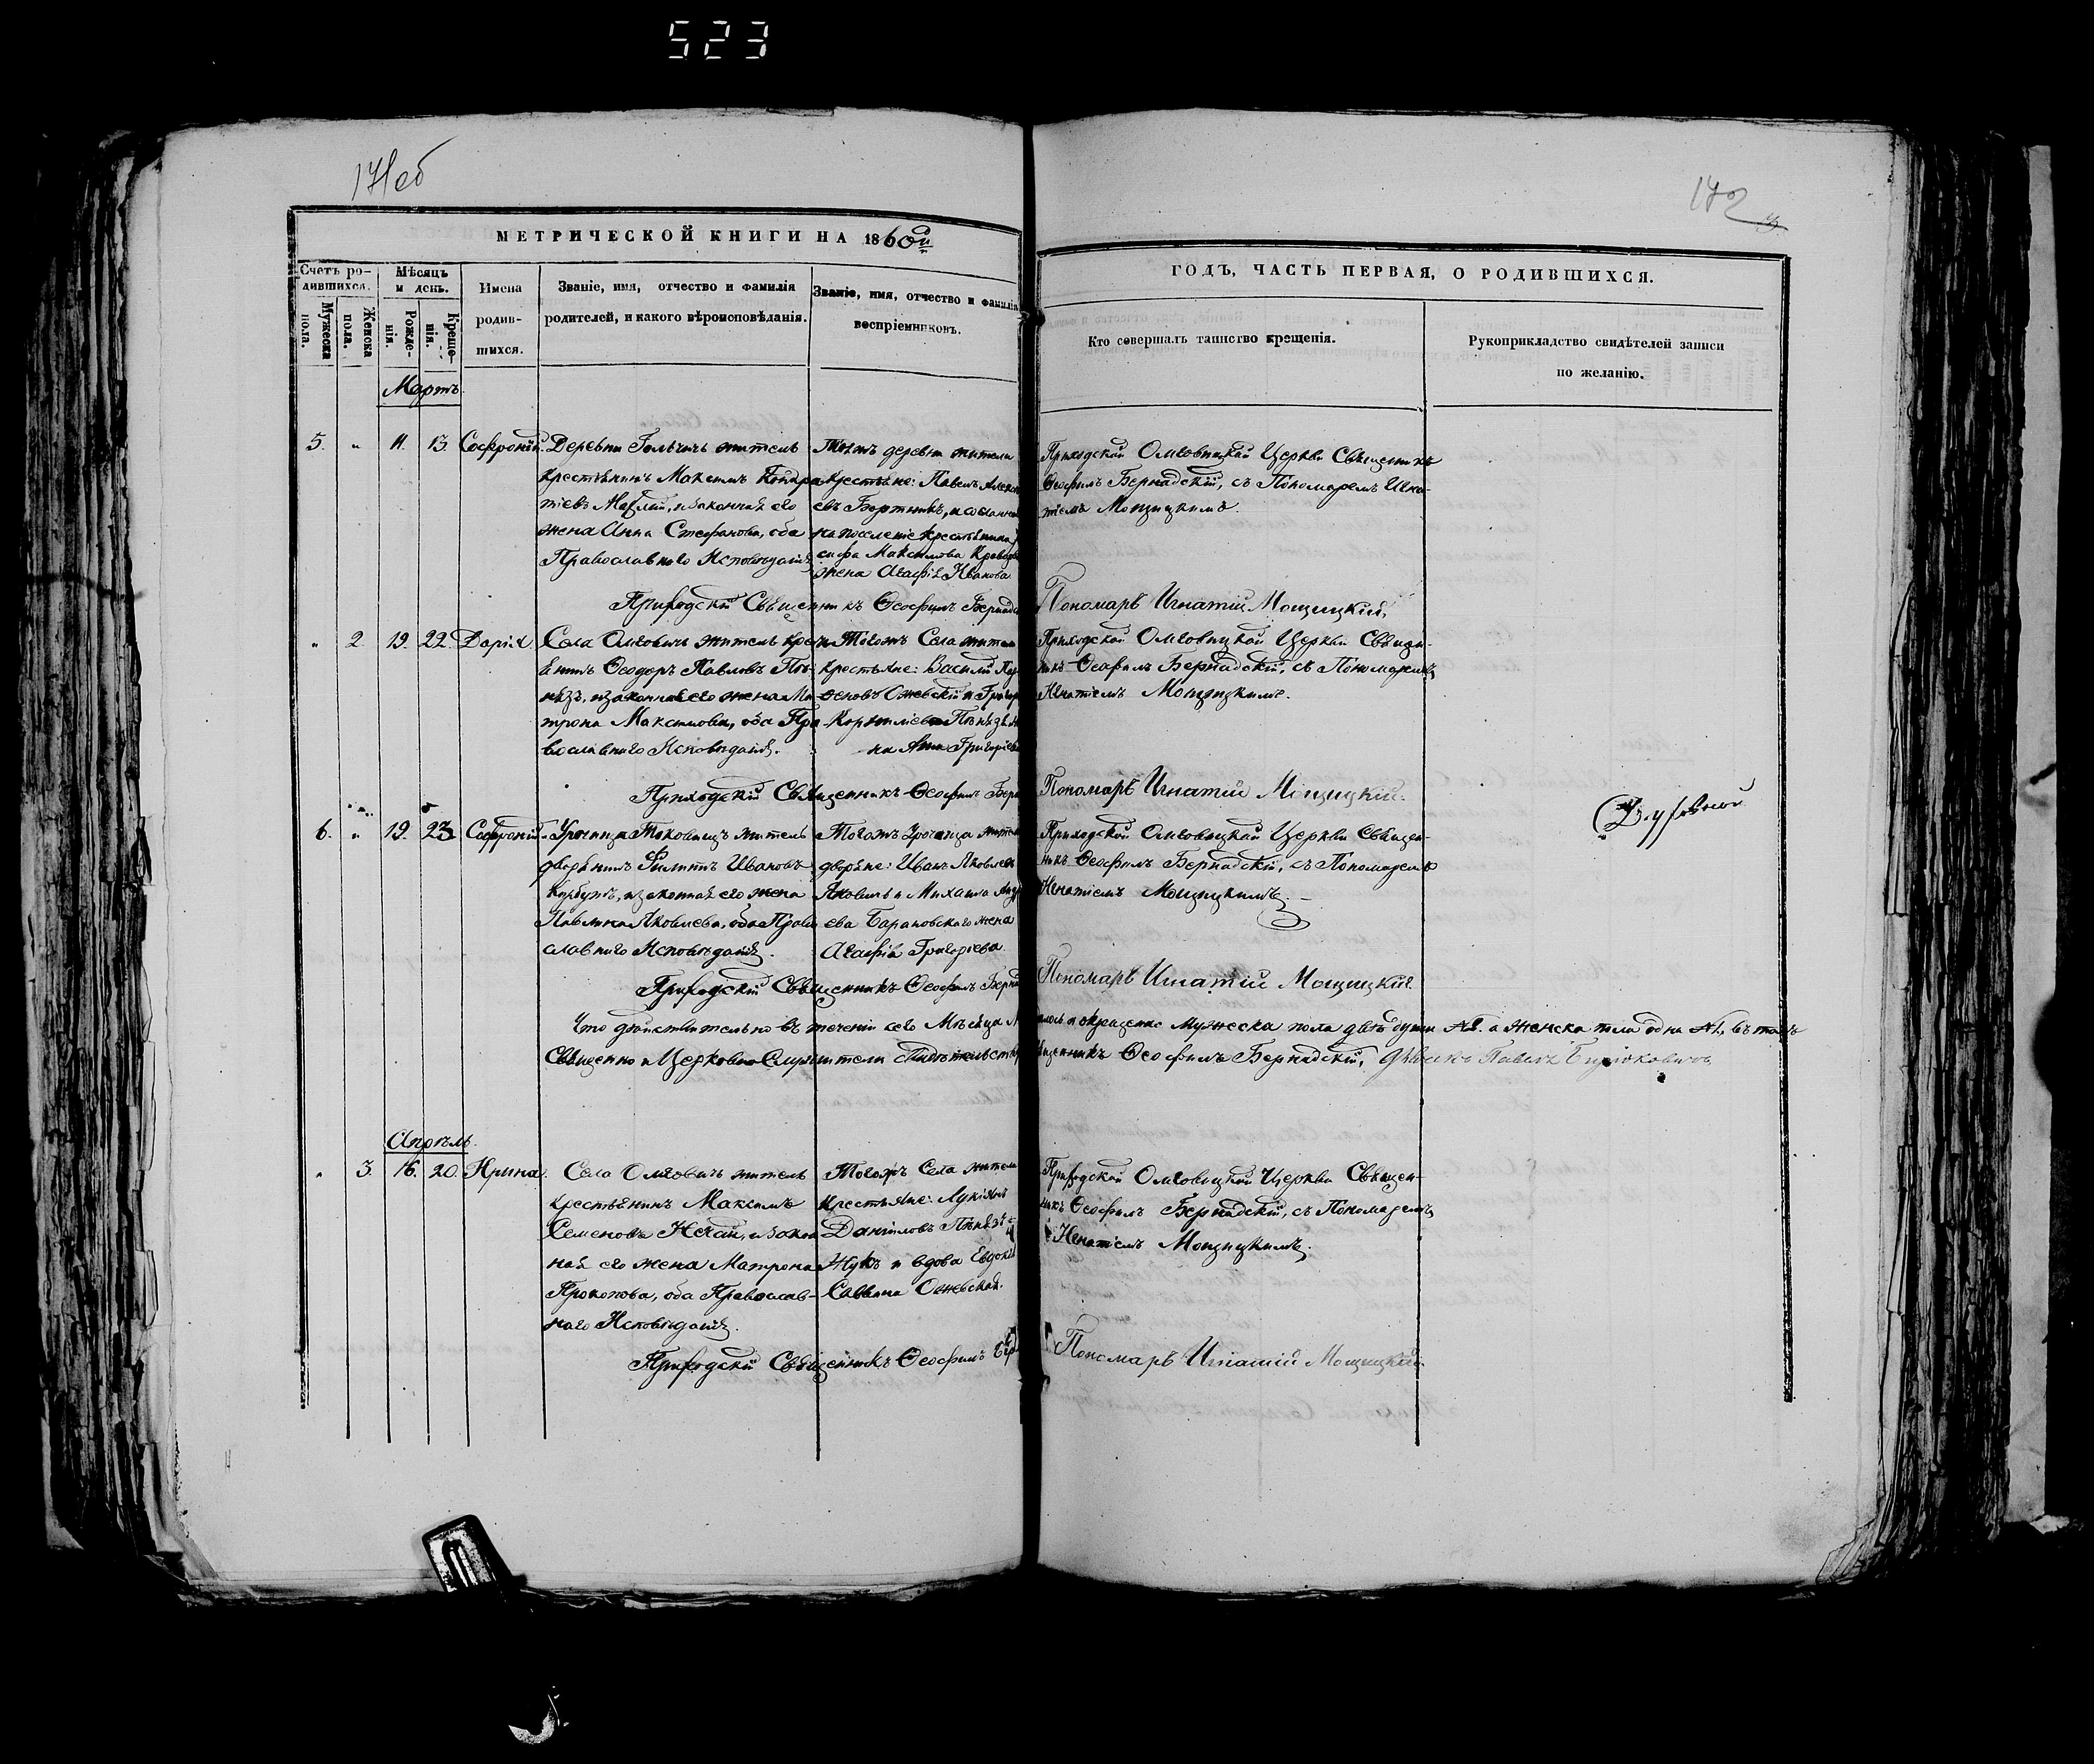 523
171 об
172
МЕТРИЧЕСКОЙ КНИГИ НА 1860й
Счетъ ро-
дившихся.
Мужеска
пола.
Женска
пола.
Мѣсяцъ
и день.
Рожде-
нія.
Креще-
нія.
Имена
родив-
шихся.
Званіе, имя, отчество и фамилія
родителей, и какого вѣроисповѣданія.
Званіе, имя, отчество и фамилія
воспріемниковъ.
ГОДЪ, ЧАСТЬ ПЕРВАЯ, О РОДИВШИХСЯ.
Кто совершалъ таинство крещенія.
Рукоприкладство свидѣтелей записи
по желанію.
Мартъ
5. " 11. 13. Софроній.
Деревни житель
крестьянинъ Максимъ Кондра
тіевъ и законная его
жена Анна Стефанова, оба
Православнаго Исповѣданія
деревни жители
крестьяне: Павелъ
евъ Бортникъ, и
на поселеніе крестьянина
сифа Максимова
жена Агафія Иванова
Приходской Омговицкой Церкви Священникъ
Ѳеофилъ Бернадскій, съ Пономаремъ Игна-
тіемъ Мощицкимъ.
Приходскій Священникъ Ѳеофилъ
Пономарь Игнатій Мощицкій.
" 2. 19. 22. Дарія.
Села Омговичъ житель крест
янинъ Ѳеодоръ Павловъ Пѣ-
нязь, и законная его жена Ма
трона Максимова, оба Пра
вославнаго Исповѣданія.
Тогожъ Села жители
крестьяне: Василій
оновъ Ожевскій и Григор
Корниліева Пѣнязя
на Анна Григоріева
Приходской Омговицкой Церкви Священ-
никъ Ѳеофилъ Бернадскій, съ Пономаремъ
Игнатіемъ Мощицкимъ.
Приходскій Священникъ Ѳеофилъ Берн
Пономарь Игнатій Мощицкій.
6. " 19. 23. Софроній.
Урочища житель
дворянинъ Филиппъ Ивановъ
Корбутъ, и законная его жена
Павлина Яковлева, оба Право
славнаго Исповѣданія.
Тогожъ Урочища жители
дворяне: Иванъ Яковлевъ
и Михаила Андр
еева Барановскаго жена
Агафія Григорьева.
Приходской Омговицкой Церкви Священ-
никъ Ѳеофилъ Бернадскій, съ Пономаремъ
Игнатіемъ Мощицкимъ.
Приходскій Священникъ Ѳеофилъ Берна
Пономарь Игнатій Мощицкій.
Что дѣйствительно въ теченіи сего Мѣсяца М и окрещено мужеска пола двѣ души №2. а женска пола одна №1, въ томъ
Священно и Церковно Служители Свидѣтельств Священникъ Ѳеофилъ Бернадскій, Дьякъ Павелъ
Апрѣль.
" 3. 16. 20. Ирина.
Села Омговичъ житель
крестьянинъ Максимъ
Семеновъ Нечай, и закон
ная его жена Матрона
Прокопова, оба Православ-
наго Исповѣданія.
Тогожъ Села жители
крестьяне: Лукіянъ
Даніиловъ
Жукъ и вдова Евдокія
Саввина Ожевская.
Приходской Омговицкой Церкви Священ-
никъ Ѳеофилъ Бернадскій, съ Пономаремъ
Игнатіемъ Мощицкимъ.
Приходскій Священникъ Ѳеофилъ Бер
Пономарь Игнатій Мощицкій